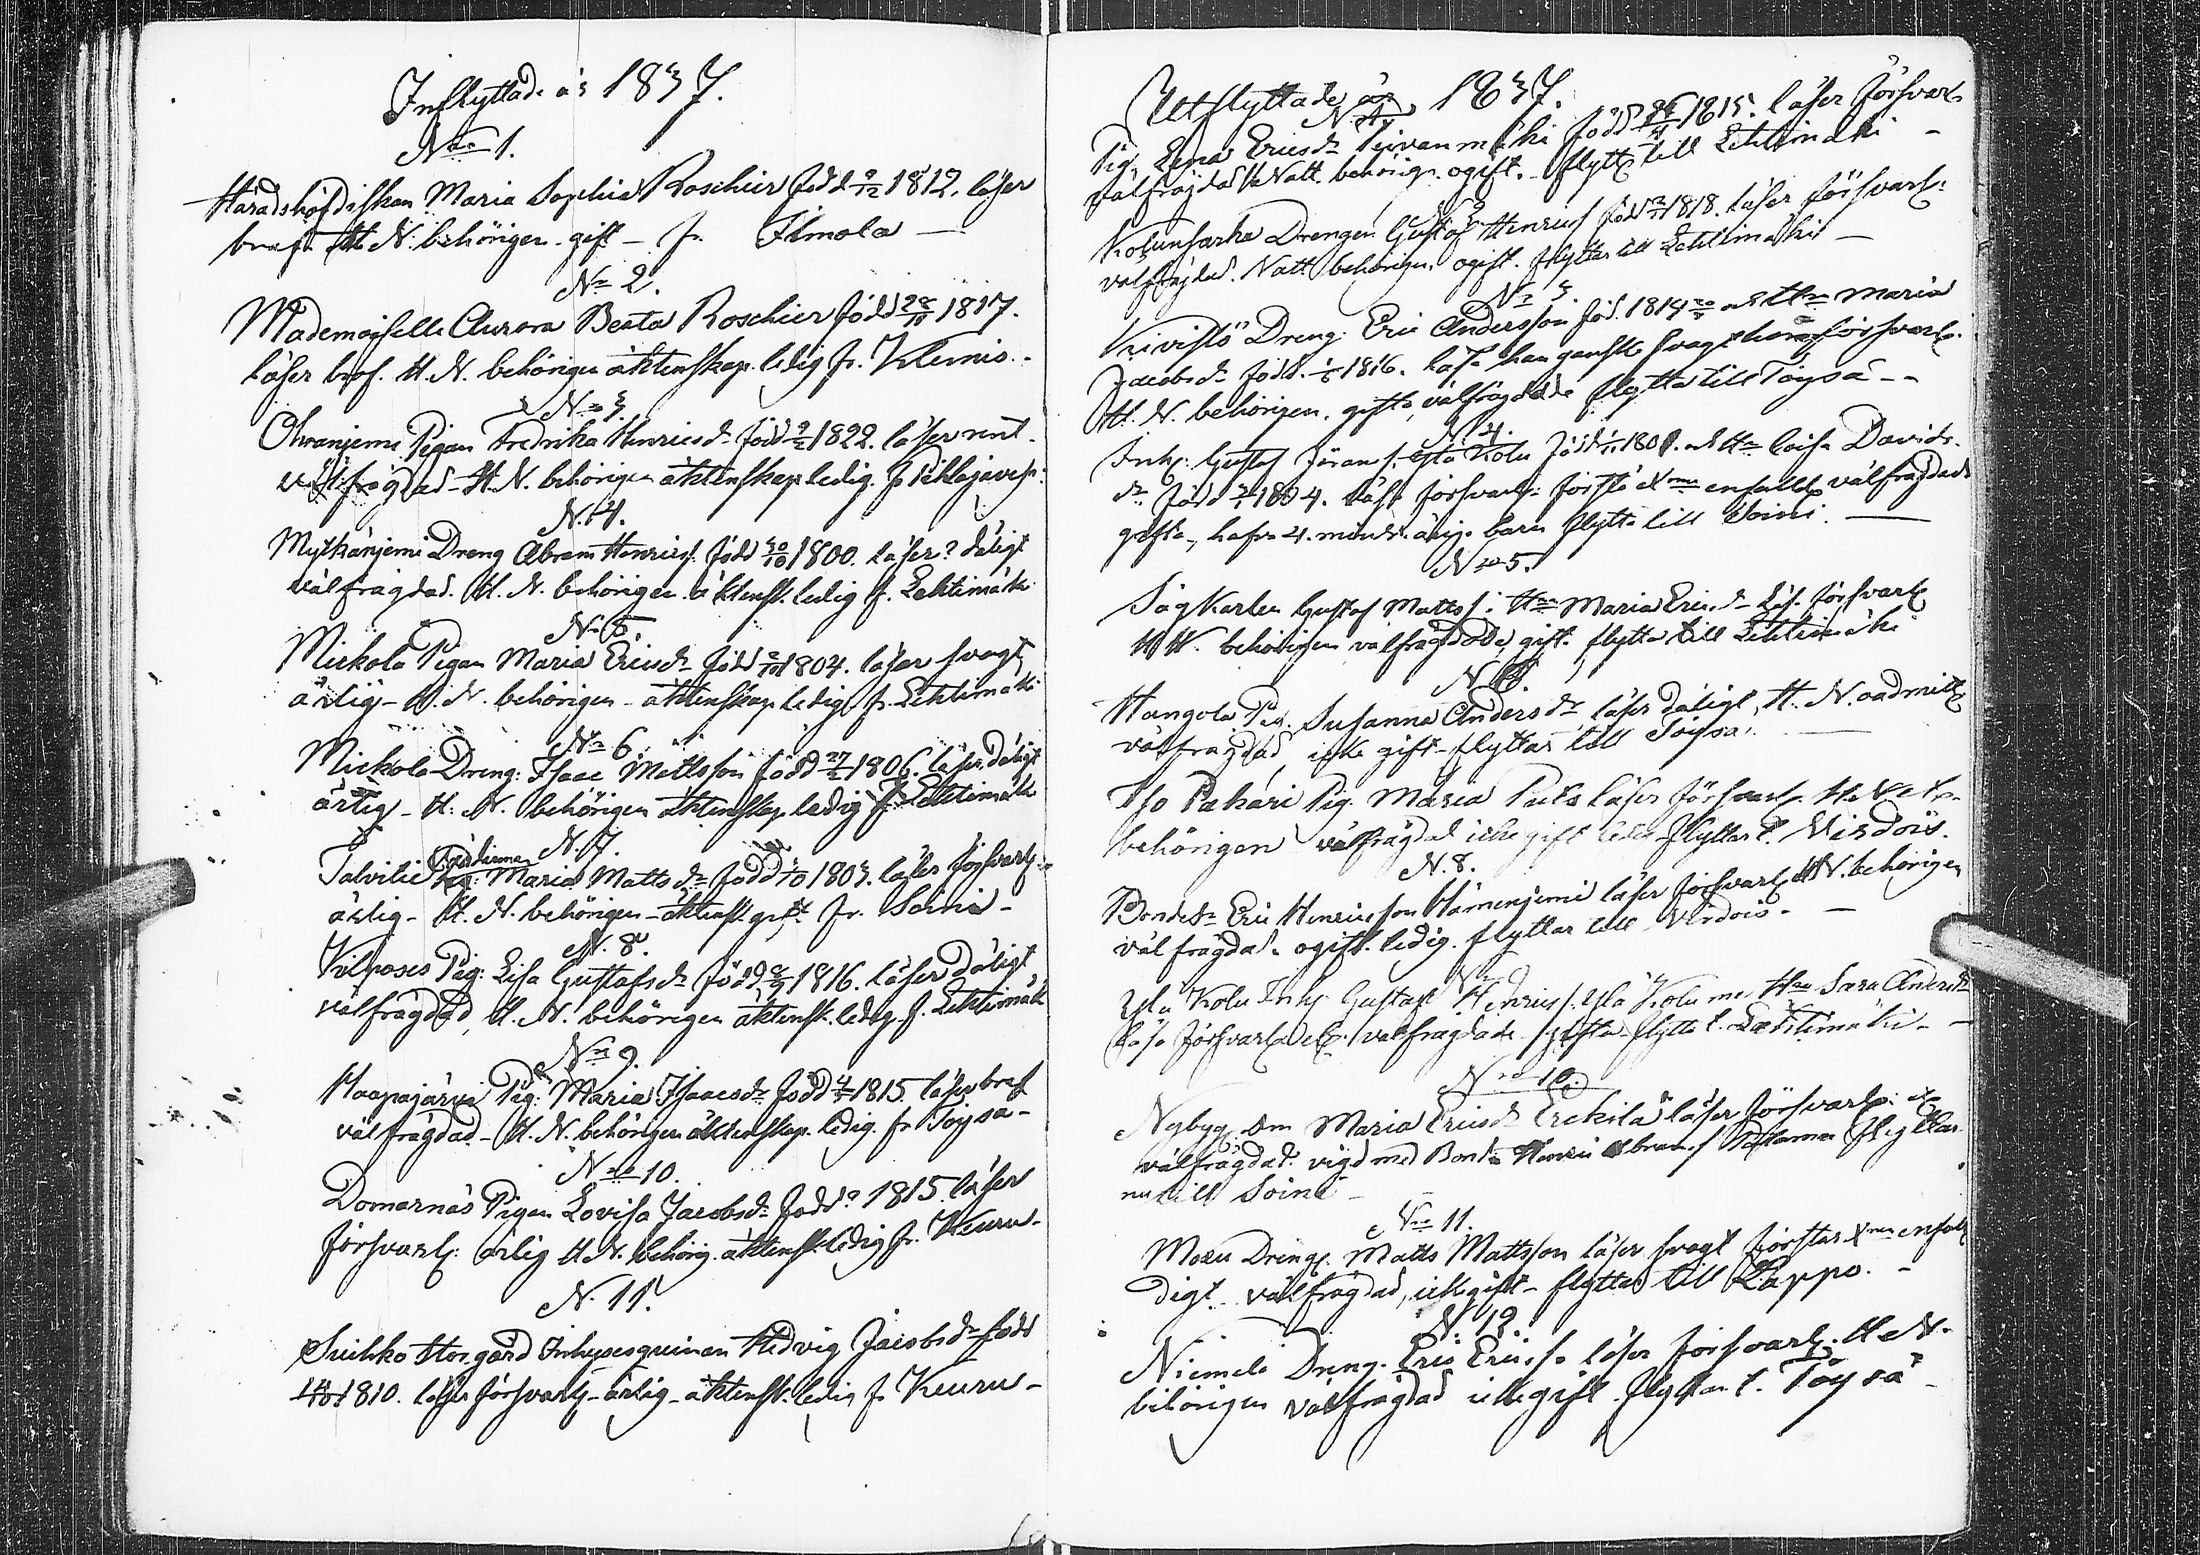 Inflyttade år 1837.
No 1.
Häradshöfdiskan Maria Sophia Roschier född 9/12 1812. läser
braf. H. N. behörigen gift - fr. Ilmola -
No 2.
Mademoiselle Aurora Beata Roschier född 28/11 1817.
läser braf. H. N. behörigen äktenskap. ledig fr. Klemis.
No 3.
Pigan Fredrika Henricsdr född 9/2 1822. läser rent
välfrägdad - H. N. behörigen äktenskap ledig.
N. 4.
Mytkänjemi Dreng Abram Henricss. född 30/10 1800. läser? dåligt
välfrägdad. H. N. behörigen äktensk. ledig f. Lehtimäki
No 5
Mickola Pigan Maria Ericsdr född 1804. läser svagt,
ärlig - H. N. behörigen - äktenskap ledig fr. Lehtimäki
No 6.
Mickola Dreng: Isaac Mattsson född 27/2 1806. läser dåligt
ärlig - H. N. behörigen äktenskap ledig fr Lehtimäki
N. 7.
Maria Mattsdr född 1803. läser försvarl.
ärlig - H. N. behörigen - äktensk. gift fr. Soini -
N. 8.
Pig: Lisa Gustafsdr född 1816. läser dåligt
välfrägdad, H. N. behörigen äktensk. ledig. f. Lehtimäki
No 9.
Haapajärvi Pig: Maria Isaacsdr född 1815. läser braf
välfrägdad - H. N. behörigen äktenskap. ledig. fr Töysä -
No 10.
Domarnäs Pigan Lovisa Jacobsdr född? 1815. läser
försvarl: ärlig H. N. behörig. äktensk. ledig fr. Keuru -
N. 11.
Suihko Hofgård Inhysesqvinnan Hedvig Jacobsdr född
1810. läser försvarl - ärlig - äktensk. ledig f. Keuru -
Utflyttade år 1837.
Pig. Lena Ericsdr född 1815. läser försvarl.
välfrägdad Natt. behörig. ogift. flyttr till Lehtimäki -
Drengen Gustaf Henricss född 1818. läser försvarl:
välfrägdad. Natt. behörigen. ogift. flyttar till Lehtimäki -
No 3.
Kivistö Dreng: Eric Andersson föd. 1814 Hu Maria
Jacobsdr född. 1816. läs. han ganska svagt hon försvarl.
H. N. behörigen. gifta, välfrägdade flytta till Töysä - -
N 4.
Inh: Gustaf Jöranss. Yla Kolu född Hu Caisa Davids-
dr född 1804. läsa försvarl. förstå Xmen enfaldl. välfrägdade
gifta, hafva 4. minderårig. barn flytta till Soini. -
No 5.
Sågkarlen Gustaf Mattss: Hu Maria Ericsdr läs. försvarl.
H N. behörigen välfrägdade, gift. flytta till Lehtimäki
N. 6.
Hangola Pig. Susanna Andersdr läser dåligt, H. N. oadmitt.
välfrägdad icke gift - flyttar till Töysä.
Iso Pakari Pig. Maria läser försvarl.
behörigen välfrägdad icke gift flyttar t. Virdois.
N. 8.
Bondes. Eric Henricsson Hämenjemi läser försvarl. H N. behörigen
välfrägdad. ogift. ledig. flyttar till Virdois. -
No 9
Yla Kolu Inh. Gustaf Henricss. Yla Kolu Hu Sara Andersdr
läsa försvarl. välfrägdade. gifta flytta t. Lehtimäki -
No 10.
Nybygg. Maria Ericsdr Erckilä läser försvarl.
välfrägdad. vigd med Bond. Henric Abrams. flyttar
nu till Soini -
No 11.
Dreng. Matts Mattsson läser svagt förstår Xmen enfal
digt välfrägdad, icke gift - flyttar till Lappo. -
N: 12.
Niemelä Dreng. Eric Ericss. läser försvarl. H. N.
behörigen välfrägdad icke gift flyttar t. Töysä -